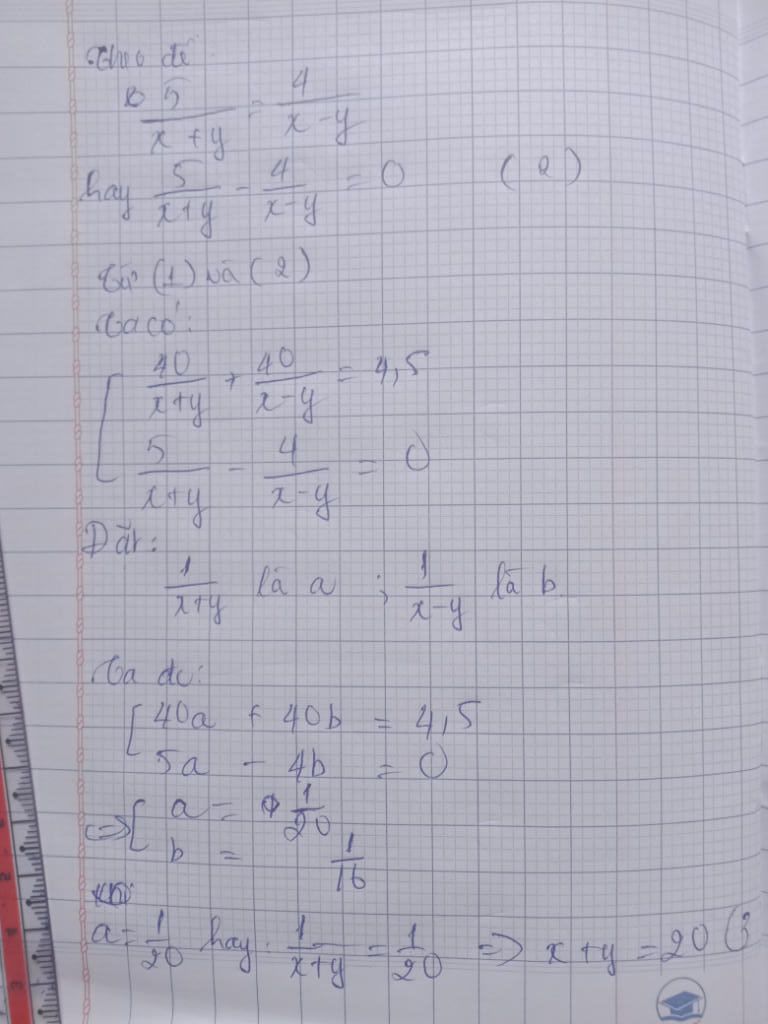 Theo đề
5/(x+y) = 4/(x-y)
hay 5/(x+y) - 4/(x-y) = 0 (2)
Từ (1) và (2)
Ta có:
40/(x+y) + 40/(x-y) = 4,5
5/(x+y) - 4/(x-y) = 0
Đặt:
1/(x+y) là a ; 1/(x-y) là b
Ta đc:
40a + 40b = 4,5
5a - 4b = 0
<=> a = 1/20
b = 1/16
a = 1/20 hay 1/(x+y) = 1/20 => x + y = 20 (3